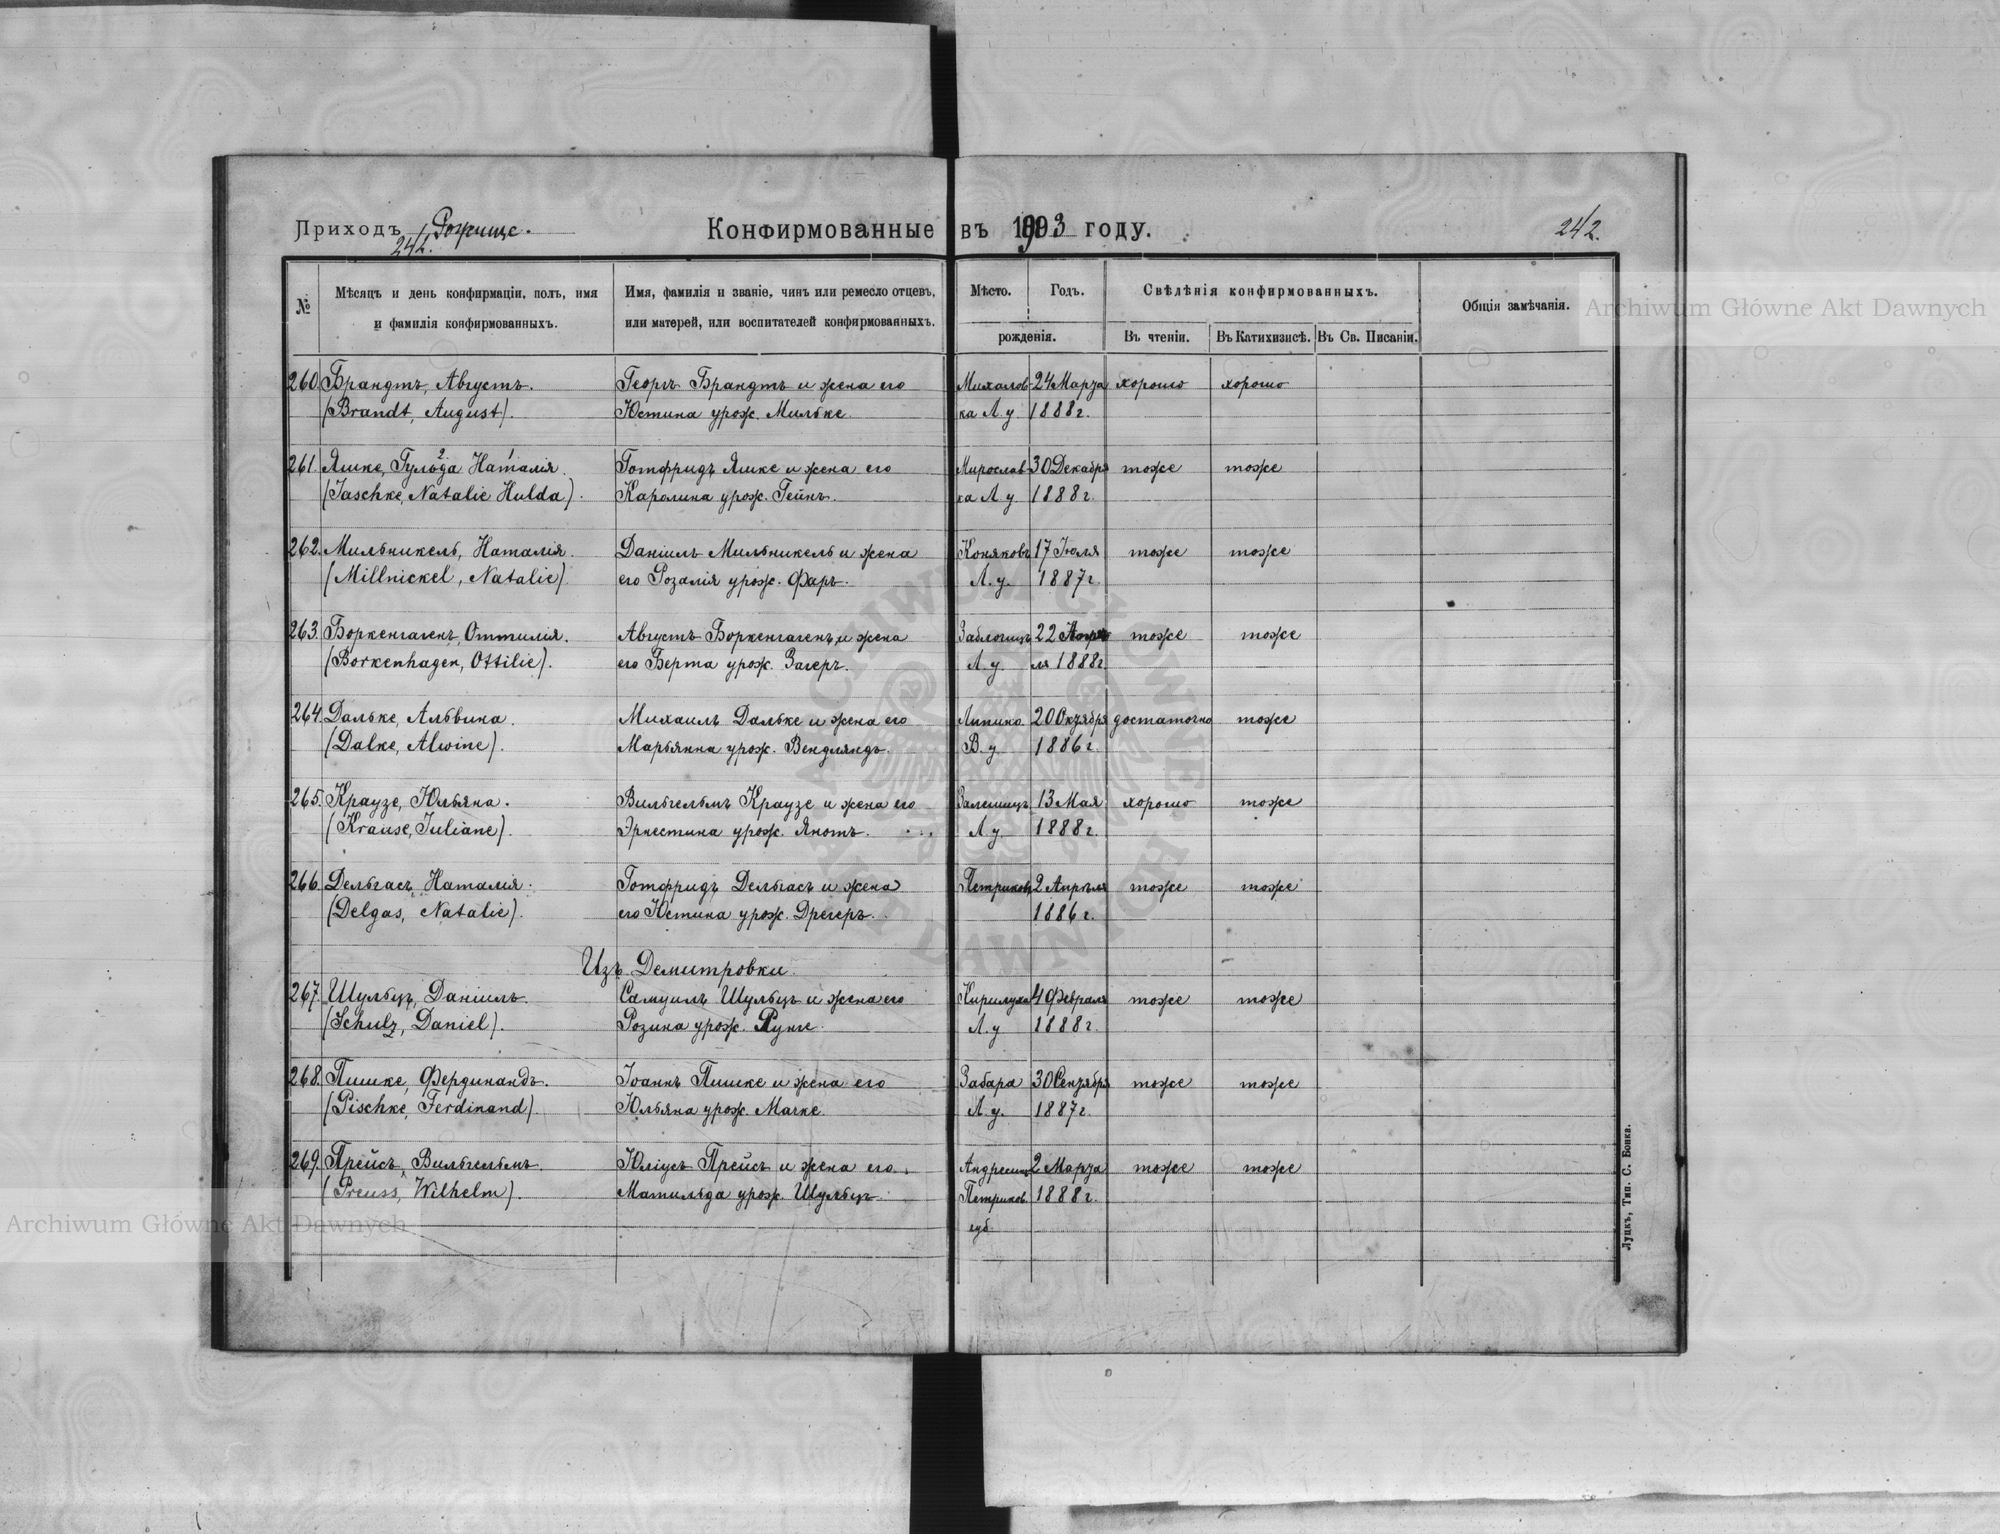 Приходъ Рожище.
241.
Конфирмованные въ 1903 году.
242.
№
Мѣсяцъ и день конфирмаціи, полъ, имя
и фамилія конфирмованныхъ.
Имя, фамилія и званіе, чинъ или ремесло отцевъ,
или матерей, или воспитателей конфирмованныхъ.
Мѣсто. Годъ.
рожденія.
Свѣдѣнія конфирмованныхъ.
Въ чтеніи. Въ Катихизисѣ. Въ Св. Писаніи.
Общія замѣчанія.
260. Брандтъ, Августъ. Георгъ Брандтъ и жена его Михалов- 24 Марта хорошо хорошо
(Brandt, August). Юстина урож. Мильке. ка Л. у. 1888 г.
261. Яшке, Гульда 2 Наталія 1. Готфридъ Яшке и жена его Мирослав- 30 Декабря тоже тоже
(Jaschke, Natalie Hulda). Каролина урож. Гейнъ. ка Л. у. 1888 г.
262. Мильникель, Наталія. Даніилъ Мильникель и жена Коняковъ 17 Іюля тоже тоже
(Millnickel, Natalie) его Розалія урож. Фаръ. Л. у. 1887 г.
263. Боркенгагенъ, Оттилія. Августъ Боркенгагенъ и жена 22 Апрѣ тоже тоже
(Borkenhagen, Ottilie). его Берта урож. Загеръ. Л. у. ля 1888 г.
264. Дальке, Альвина. Михаилъ Дальке и жена его Липино 20 Октября достаточно тоже
(Dalke, Alwine). Марьянна урож. Вендляндъ. В. у. 1886 г.
265. Краузе, Юльяна. Вильгельмъ Краузе и жена его 13 Мая хорошо тоже
(Krause, Juliane). Эрнестина урож. Янотъ. Л. у. 1888 г.
266. Дельгасъ, Наталія. Готфридъ Дельгасъ и жена Петриков 2 Апрѣля тоже тоже
(Delgas, Natalie). его Юстина урож. Дрегеръ. 1886 г.
Изъ Демитровки.
267. Шульцъ, Даніилъ. Самуилъ Шульцъ и жена его Кирилуха 4 Февраля тоже тоже
(Schulz, Daniel). Розина урож. Рунге. Л. у. 1888 г.
268. Пишке, Фердинандъ. Іоаннъ Пишке и жена его Забара 30 Сентября тоже тоже
(Pischke, Ferdinand). Юльяна урож. Мачке. Л. у. 1887 г.
269. Прейсъ, Вильгельмъ. Юліусъ Прейсъ и жена его 2 Марта тоже тоже
(Preuss, Wilhelm). Матильда урож. Шульцъ. Петриков. 1888 г.
губ.
Луцкъ, Тип. С. Бонка.
Archiwum Główne Akt Dawnych
Archiwum Główne Akt Dawnych
ARCHIWUM GŁÓWNE AKT DAWNYCH